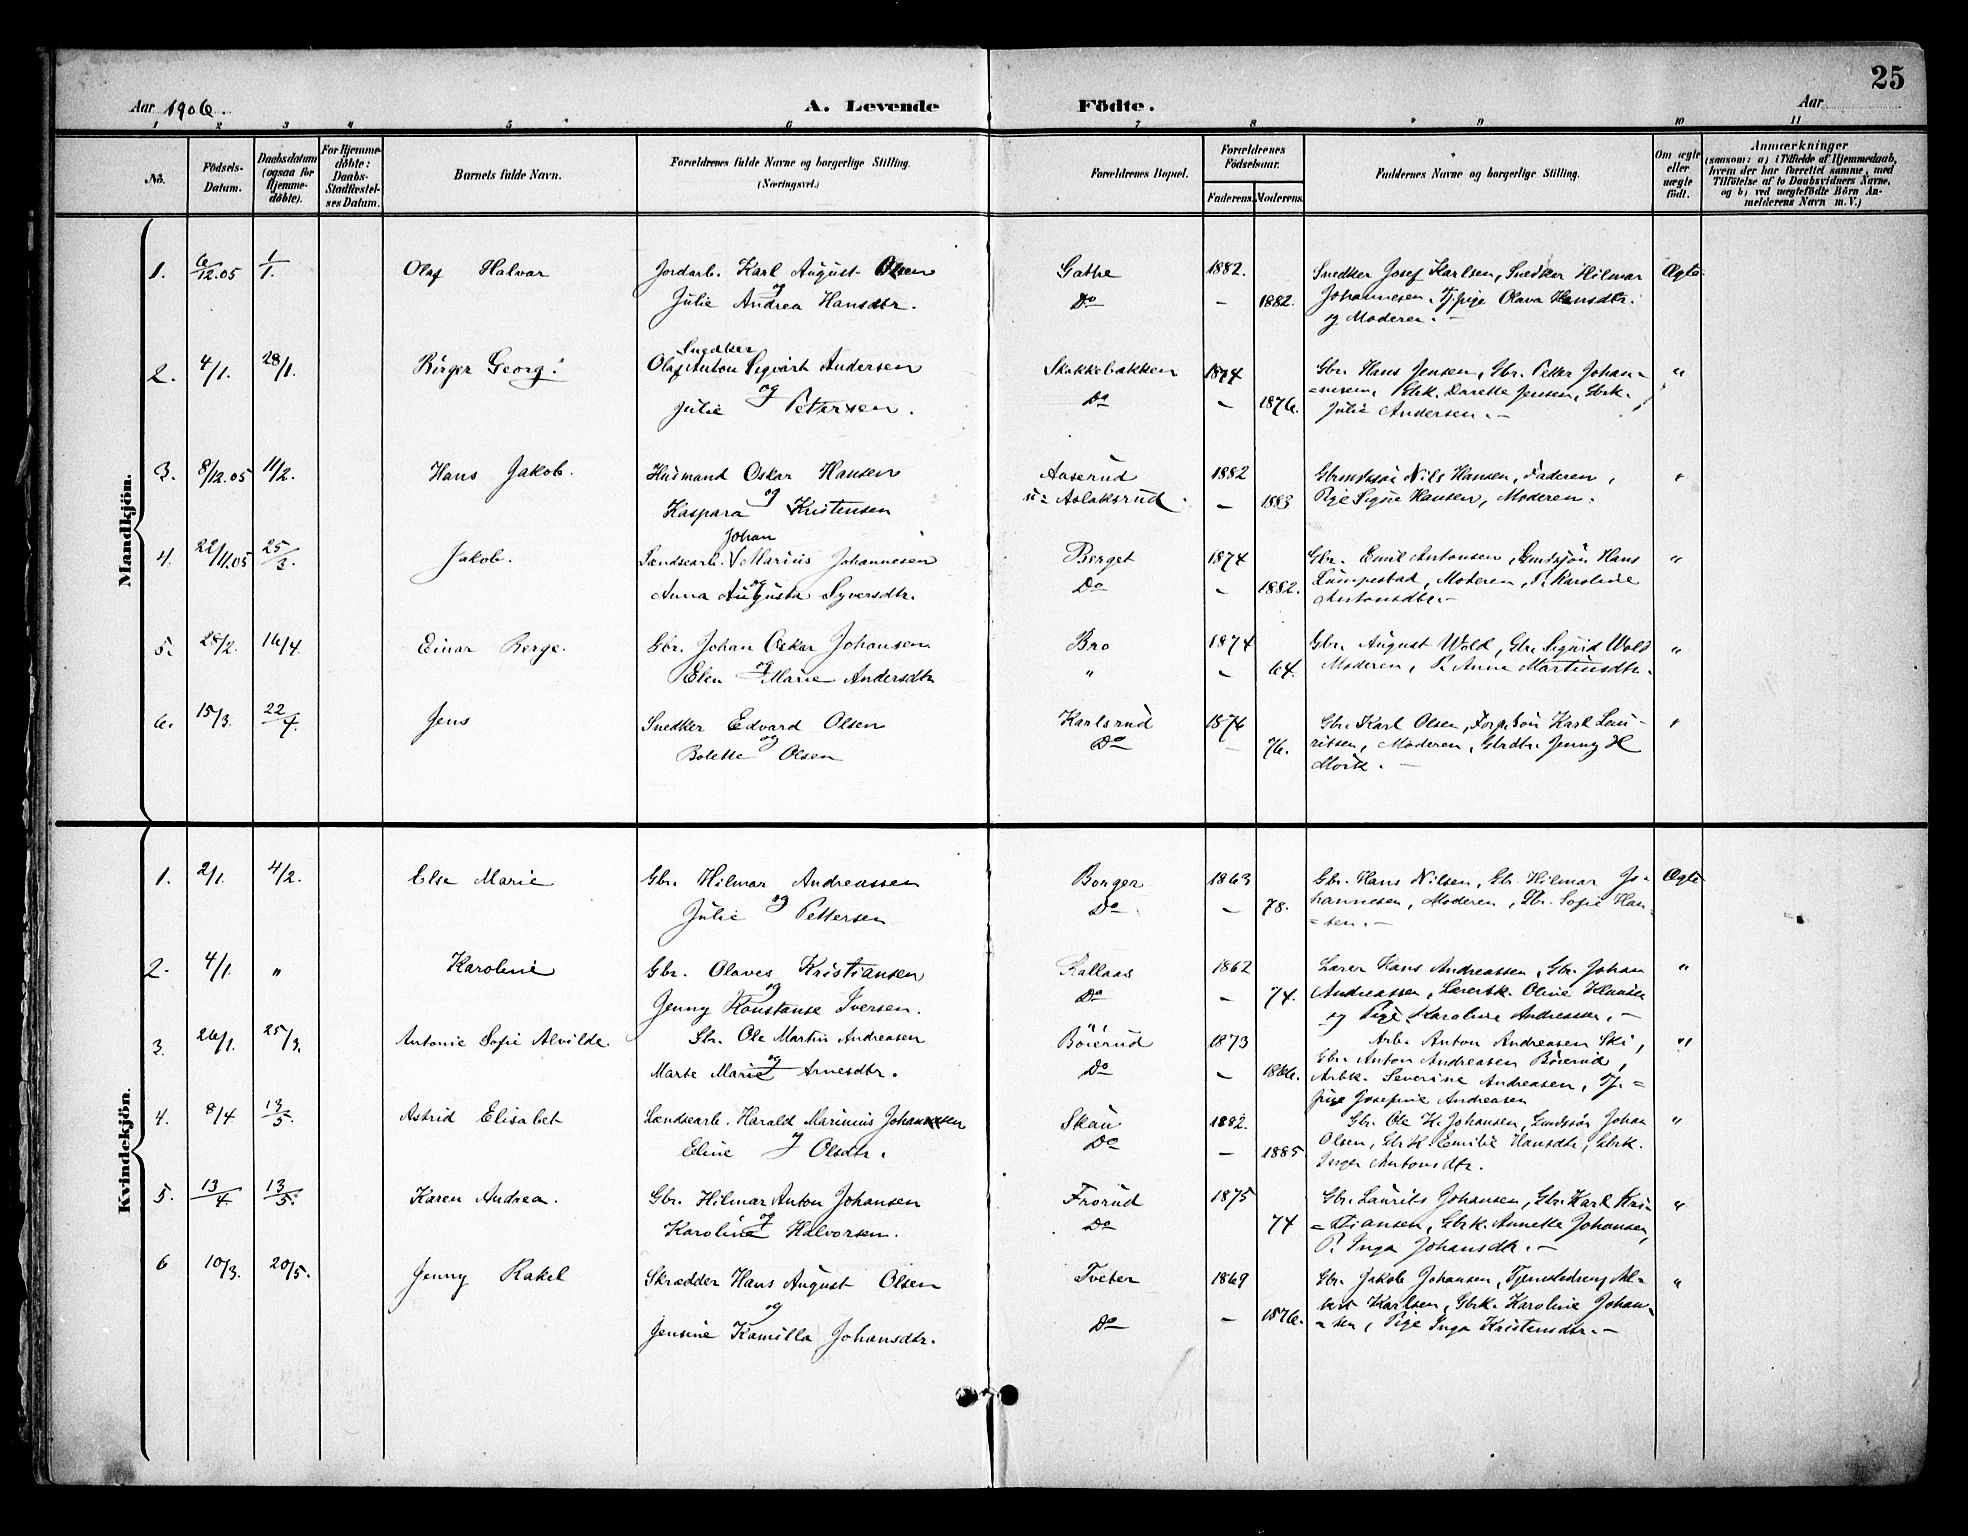 25
Aar 1906. A. Levende Födte. Aar
1 2 3 4 5 6 7 8 9 10 11
No. Födsels-Datum. Daabsdatum (ogsaa for Hjemme-döbte). For Hjemme-döbte: Daabs-Stadfæstel-ses Datum. Barnets fulde Navn. Forældrenes fulde Navne og borgerlige Stilling. (Næringsvei.) Forældrenes Bopæl. Forældrenes Födselsaar. Faderens. Moderens. Faddernes Navne og borgerlige Stilling. Om ægte eller uægte födt. Anmærkninger (saasom: a) i Tilfælde af Hjemmedaab, hvem der har forrettet samme, med Tilföielse af to Daabsvidners Navne, og b) ved uægtefödte Börn An-melderens Navn m. V.)
Mandkjön.
1. 6/12.05 1/1. Olaf Halvar Jordarb. Karl August Olsen Gathe 1882. Snedker Josef Karlsen, Snedker Hilmar Ægte
og Julie Andrea Hansdtr. Do – 1882. Johannesen, Tj.pige Olava Hansdtr.
og Moderen. –
2. 4/1. 28/1. Birger Georg. Snedker
Olaf Anton Sigvart Andersen Stokkebakken 1874 Gbr. Hans Jensen, Gbr. Petter Johan- "
og Julie Petersen. Do – 1876. =nesen, Gbrk. Dorette Jensen, Gbrk.
Julie Andersen. –
3. 8/12.05 11/2. Hans Jakob. Husmand Oskar Hansen Aaserud 1882 Gbrmdssøn Nils Hansen, Faderen, "
og Kaspara Kristensen u: Aslaksrud. – 1883 Pige Signe Hansen, Moderen.
4. 22/11.05 25/3. Jakob. Johan
Landsearb. Marius Johannesen Berget 1874 Gbr. Emil Antonsen, Gmdssøn Hans "
og Anna Augusta Syversdtr. Do – 1882. Lumpestad, Moderen, P. Karoline
Antonsdtr. –
5. 28/2. 16/4. Einar Berge. Gbr. Johan Oskar Johansen Bro 1874 Gbr. August Wold, Gbr. Sigurd Wold "
og Elen Marie Andersdtr " – 64. Moderen, P. Anne Martinsdtr.
6. 15/3. 22/4. Jens Snedker Edvard Olsen Karlsrud 1876 Gbr. Karl Olsen, Forp.søn Karl Lau- "
og Bolette Olsen Do – 76. ritsen, Moderen, Gbrdtr. Jenny H
Mørk. –
Kvindekjön.
1. 2/1. 4/2. Else Marie Gbr. Hilmar Andreassen Borger 1863 Gbr. Hans Nilsen, Gbr. Hilmar Jo- Ægte
og Julie Pettersen Do – 78. hannesen, Moderen, Gbr. Sofie Han-
=sen. –
2. 4/1. " Karoline Gbr. Olaves Kristiansen Kallaas 1862 Lærer Hans Andreassen, Gbr. Johan "
og Jenny Konstanse Iversen. Do – 74. Andreassen, Lærersk. Oline
og Pige Karoline Andreassen. –
3. 26/1. 25/3. Antonie Sofie Alvilde. Gbr. Ole Martin Andreasen Böierud 1873 Arb. Anton Andreasen Ski, "
og Marte Marie Arnesdtr. Do – 1866. Gbr. Anton Andreasen Böierud,
Arbk. Severine Andreasen, Tj.=
pige Josefine Andreasen
4. 8/4 13/5. Astrid Elisabet Landsearb. Harald Marinius Johannesen Skau 1882. Gbr. Ole H. Johansen, Gmdssøn Johan "
og Eline Olsdtr. Do – 1885. Olsen, Gbrk. Emilie Hansdtr, Gbrk.
Inger Antonsdtr.
5. 13/4 13/5. Karen Andrea. Gbr. Hilmar Anton Johansen Frorud 1875 Gbr. Laurits Johansen, Gbr. Karl Kri- "
og Karoline Halvorsen. Do 74 =stiansen, Gbrk. Annette Johansen,
P. Inga Johansdtr. –
6 10/3. 20/5. Jenny Rakel Skrædder Hans August Olsen Tveter 1869 Gbr. Jakob Johansen, Tjenestedreng Al- "
og Jensine Kamilla Johansdtr. Do – 1876. bert Karlsen, Gbrk. Karoline Johan-
=sen, Pige Inga Kristensdtr. –